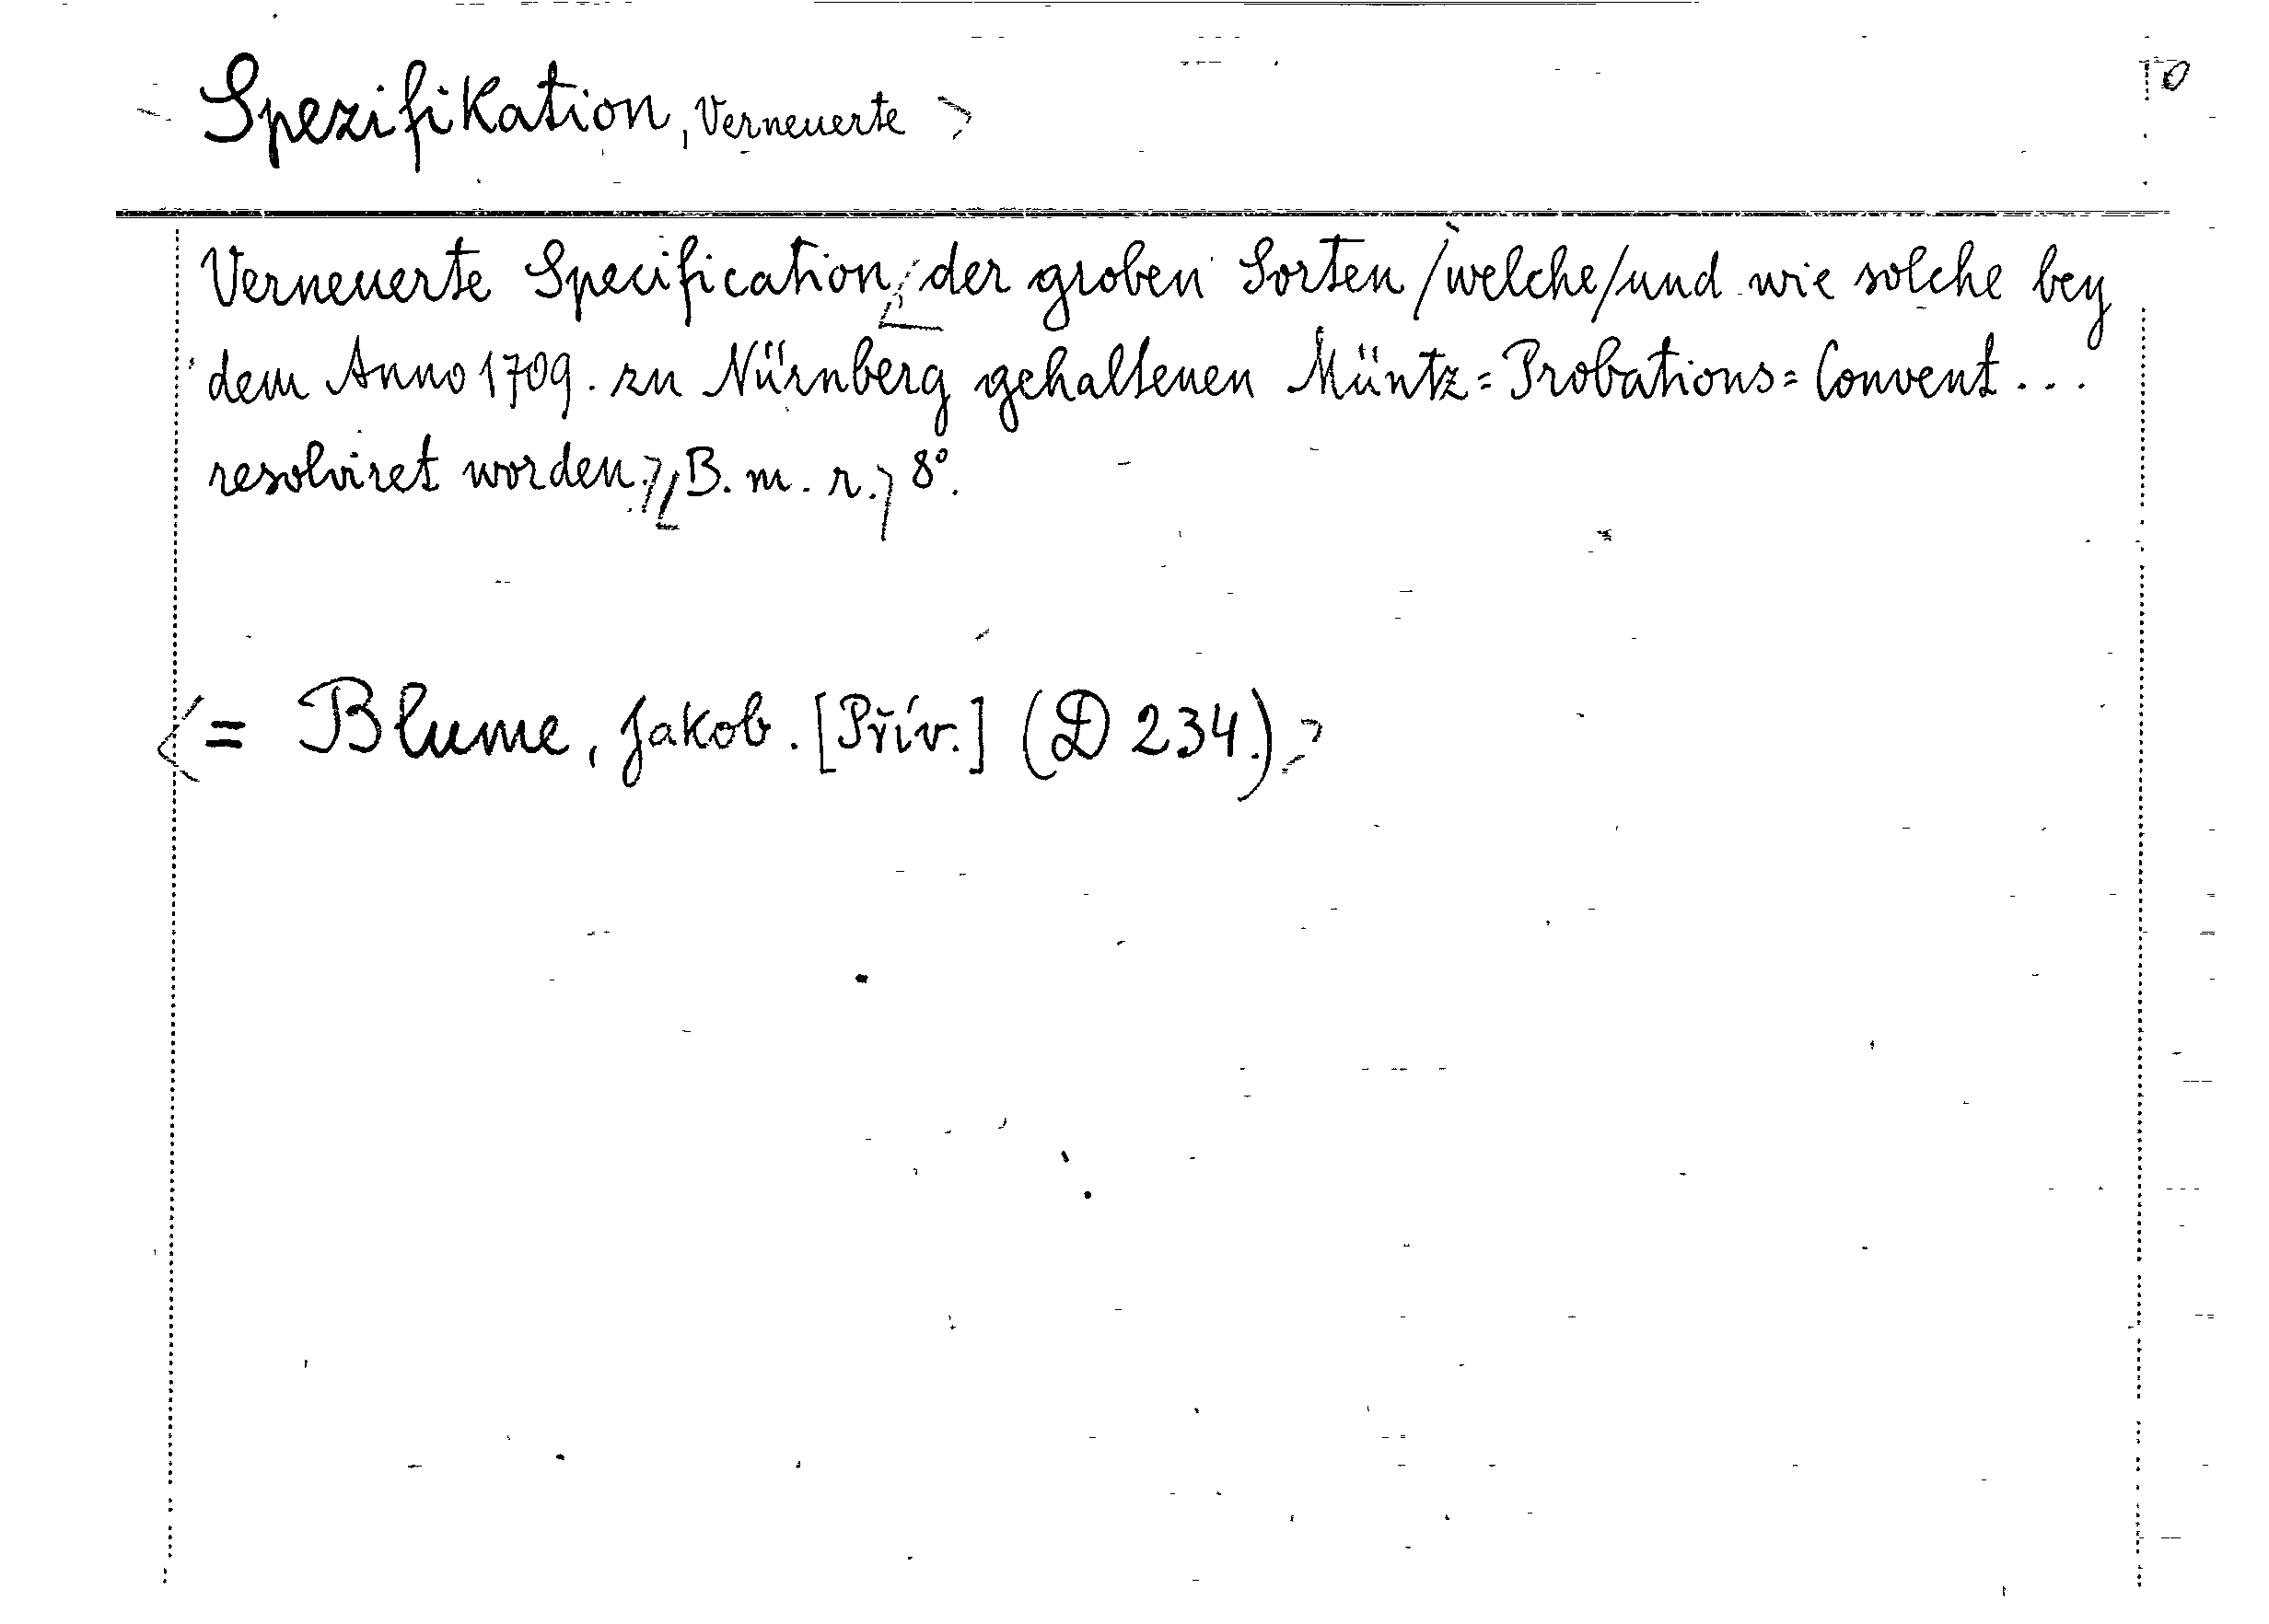 Spezifikation, Verneuerte
0
Verneuerte Specification der groben Sorten /welche/und wie solche bey
dem Anno 1709. zu Nürnberg gehaltenen Müntz=Probations=Convent...
resolviret worden. B. m. r. 8°.
= Blume, Jakob. [Přív.] (D 234.)